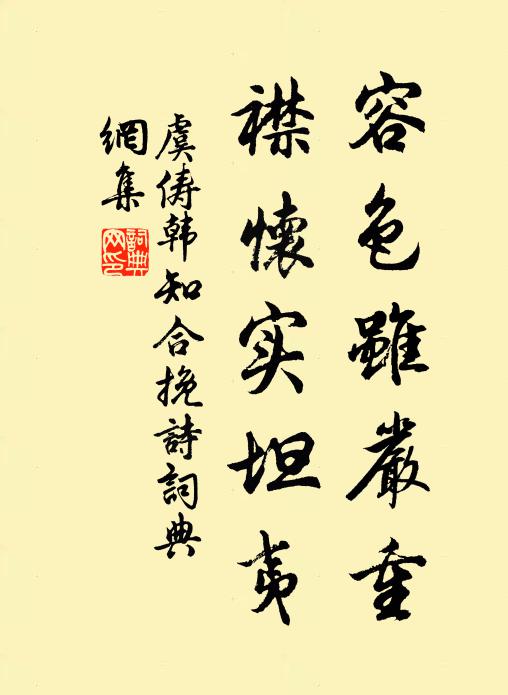 容色雖嚴重
襟懷实坦夷
虞俦韩知合挽詩詞典
網集
詞典网印